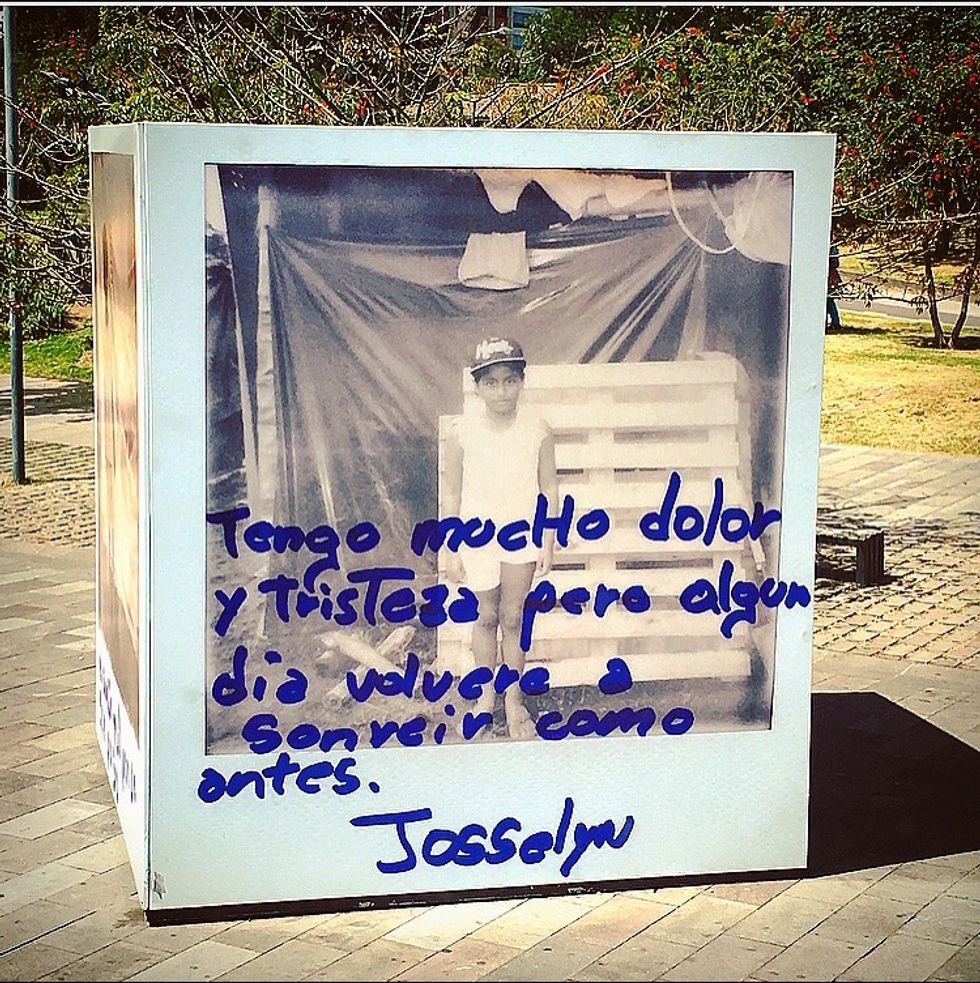 Tengo mucHo dolor
y TrisTeza pero algun
dia volvere a
sonreir como
antes.
Josselyn